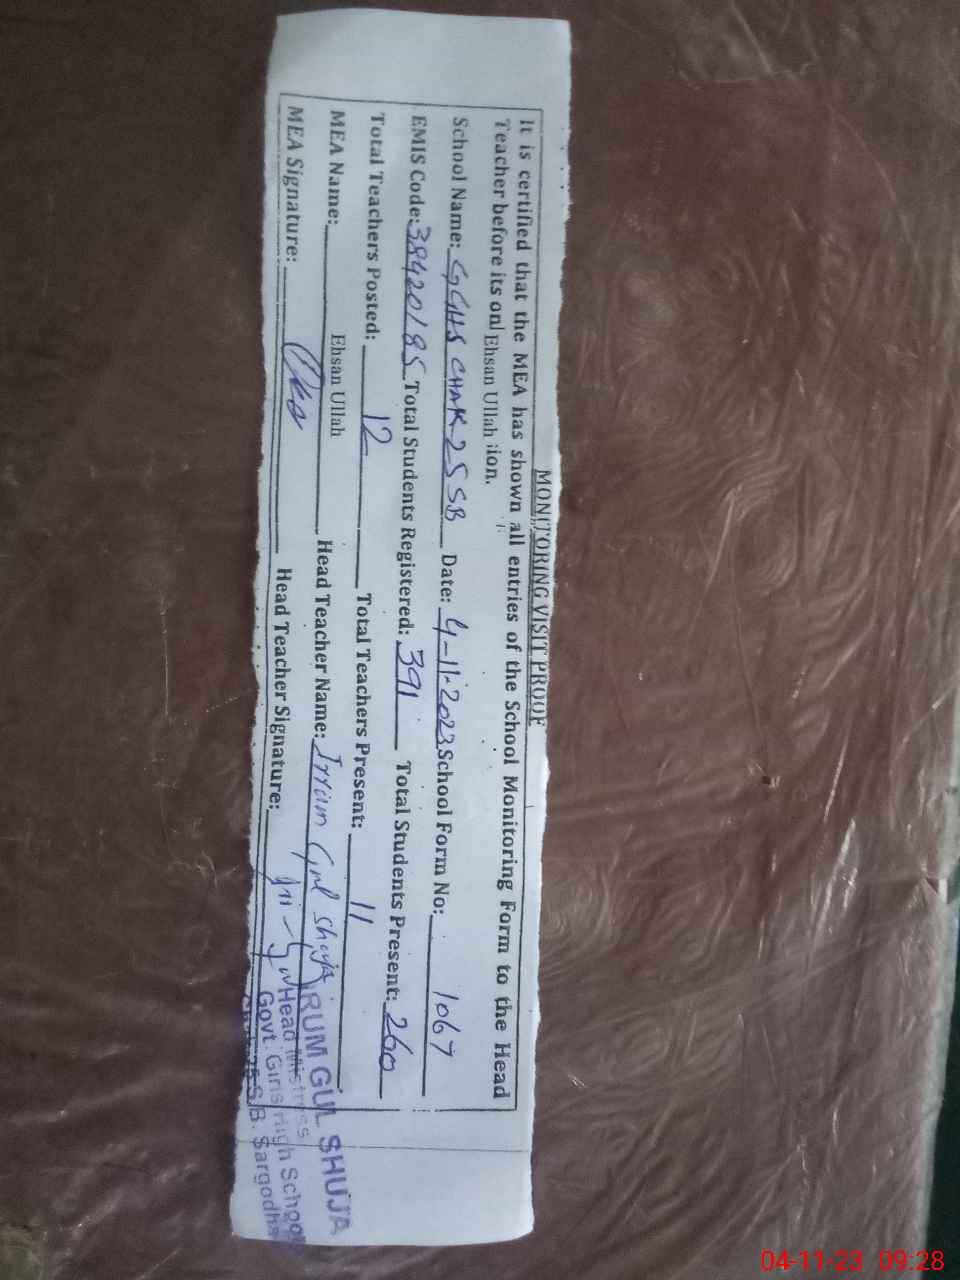 MONITORING VISIT PROOF
It is certified that the MEA has shown all entries of the School Monitoring Form to the Head
Teacher before its onl Ehsan Ullah ion.
School Name: GGHS CHAK 25 SB Date: 4-11-2023 School Form No: 1067
EMIS Code: 38420185 Total Students Registered: 391 Total Students Present: 260
Total Teachers Posted: 12 Total Teachers Present: 11
MEA Name: Ehsan Ullah Head Teacher Name: Irram Gul Shuja
MEA Signature: Head Teacher Signature:
IRUM GUL SHUJA
Head Mistress
Govt. Girls High School
Chak 25 S.B. Sargodha
04-11-23 09:28